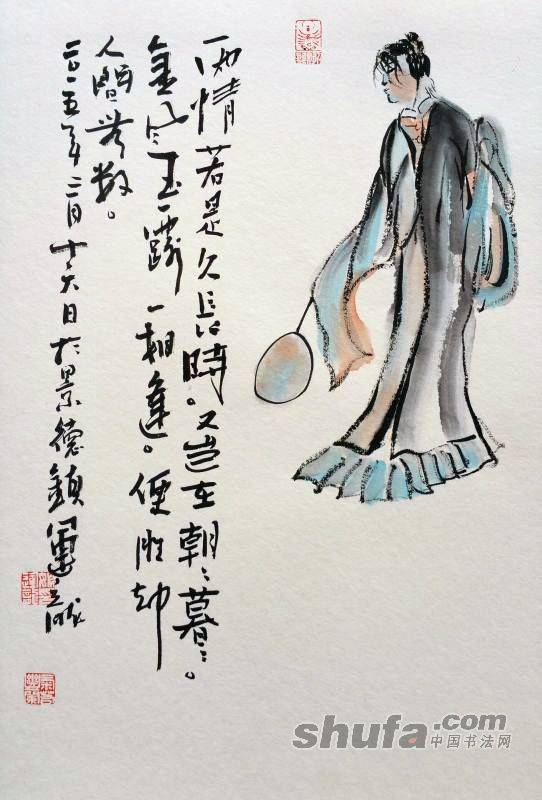 两情若是久長時。又豈在朝〻暮〻。
金风玉露一相逢。便胜却
人間无数。
二〇一五年二月十六日於景德鎮
shufa.com
中国书法网